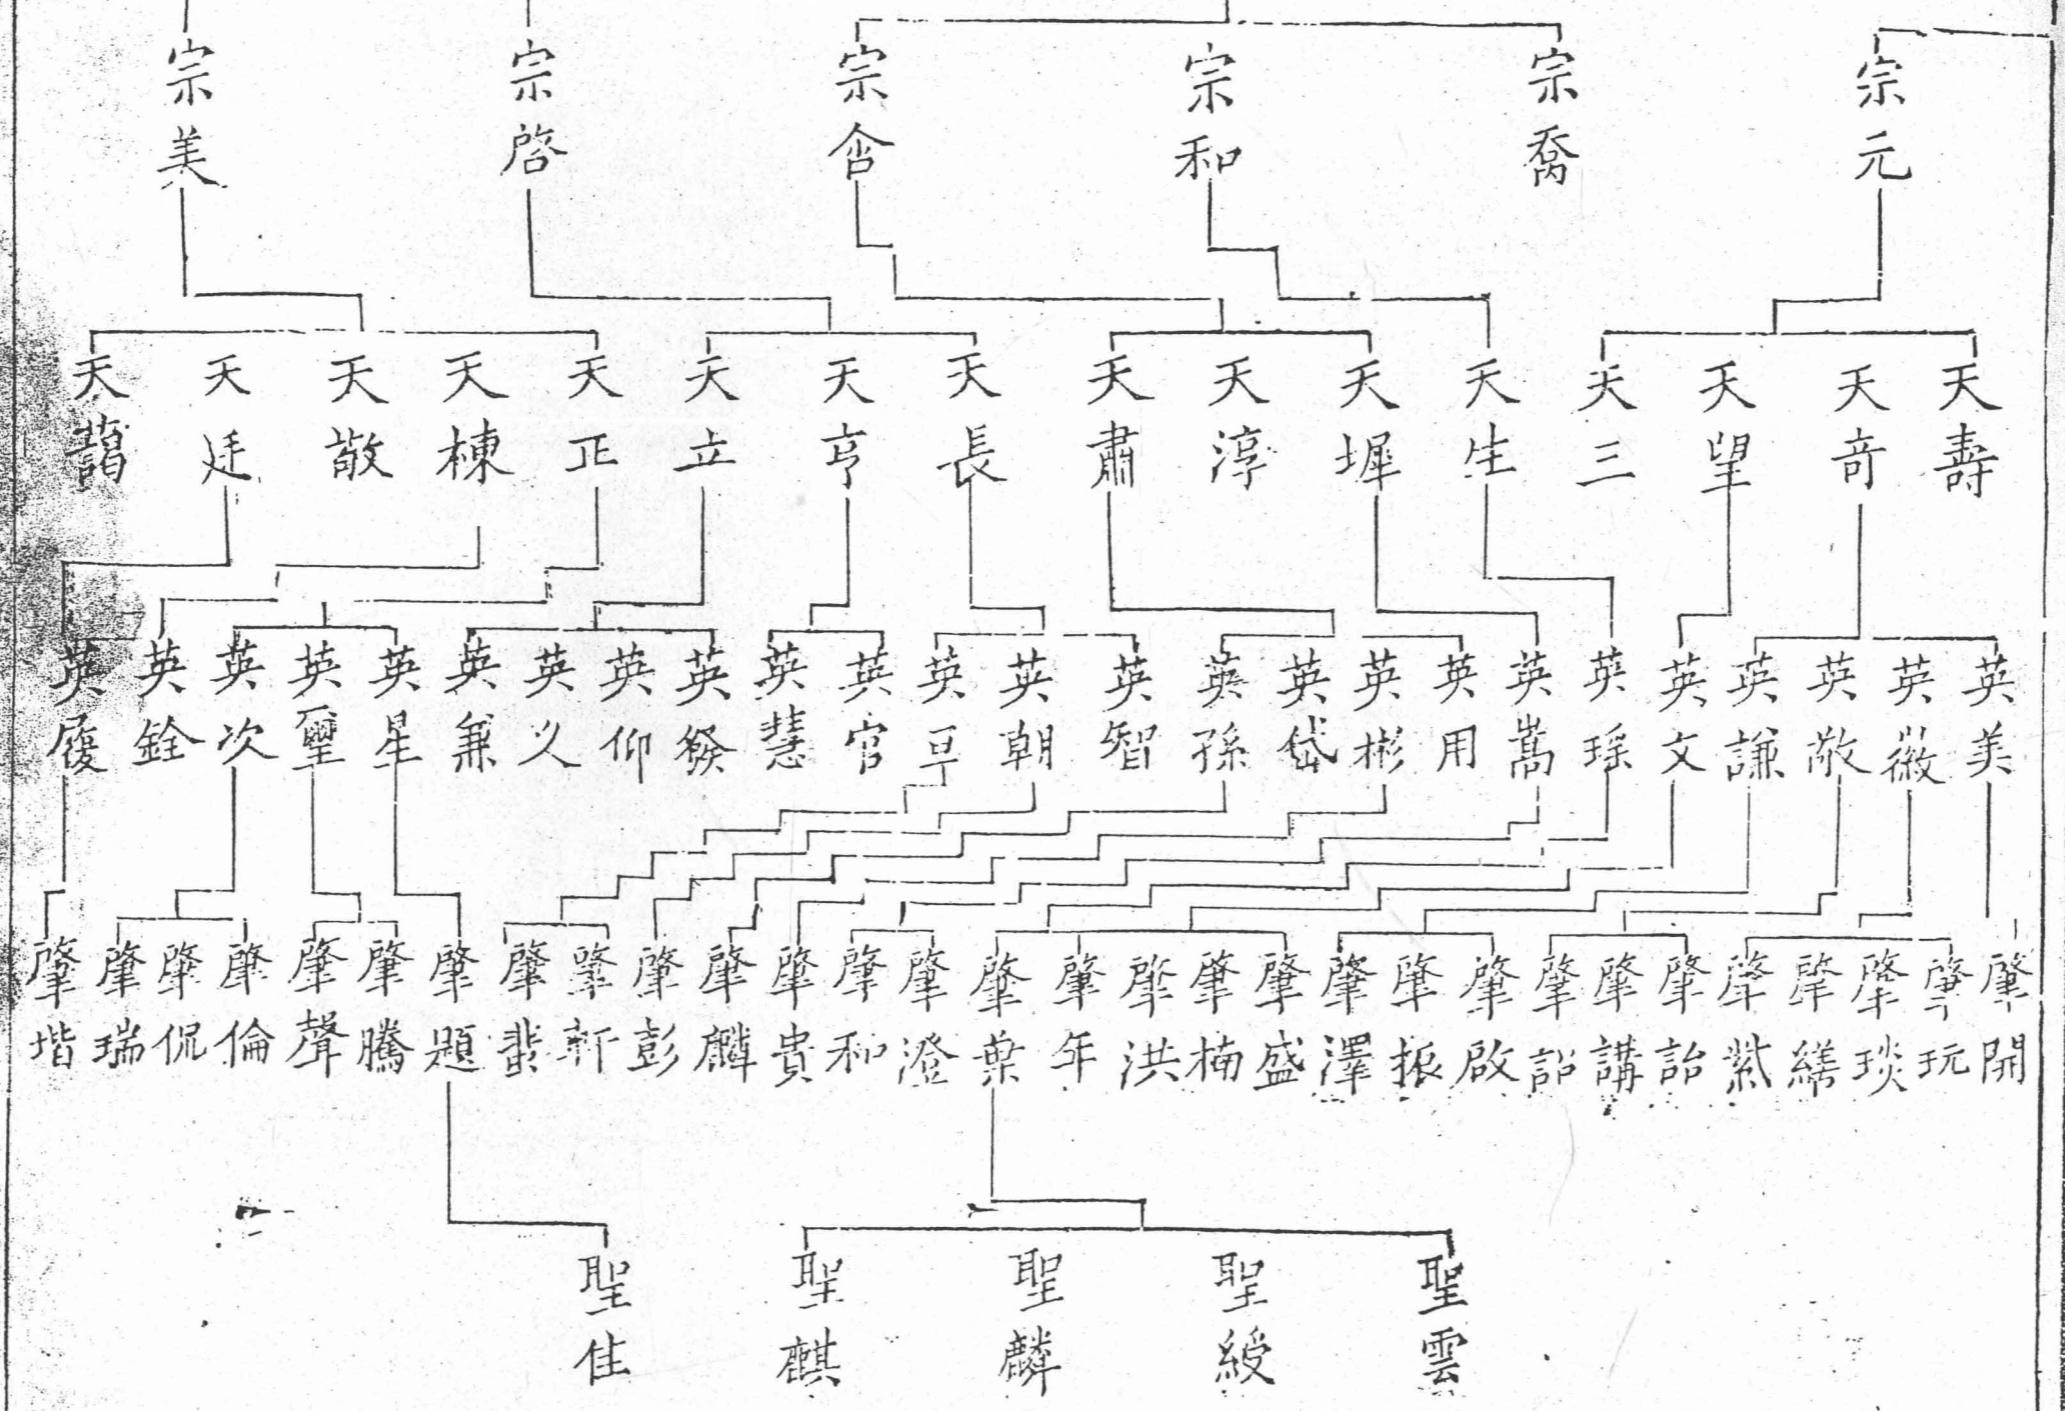 宗元
宗喬
宗和
宗含
宗啓
宗美
天壽
天奇
天望
天三
天生
天墀
天淳
天肅
天長
天亨
天立
天正
天棟
天敬
天廷
天藹
英美
英薇
英敬
英謙
英文
英瑶
英嵩
英用
英彬
英岱
英孫
英智
英朝
英亘
英官
英慧
英
英仰
英义
英兼
英星
英璽
英次
英銓
英履
肇開
肇玩
肇琰
肇繕
肇紫
肇詒
肇講
肇詔
肇啟
肇振
肇澤
肇盛
肇楠
肇洪
肇年
肇葉
肇澄
肇和
肇貴
肇麟
肇彭
肇軒
肇
肇題
肇騰
肇聲
肇倫
肇侃
肇瑞
肇堦
聖雲
聖綬
聖麟
聖麒
聖佳